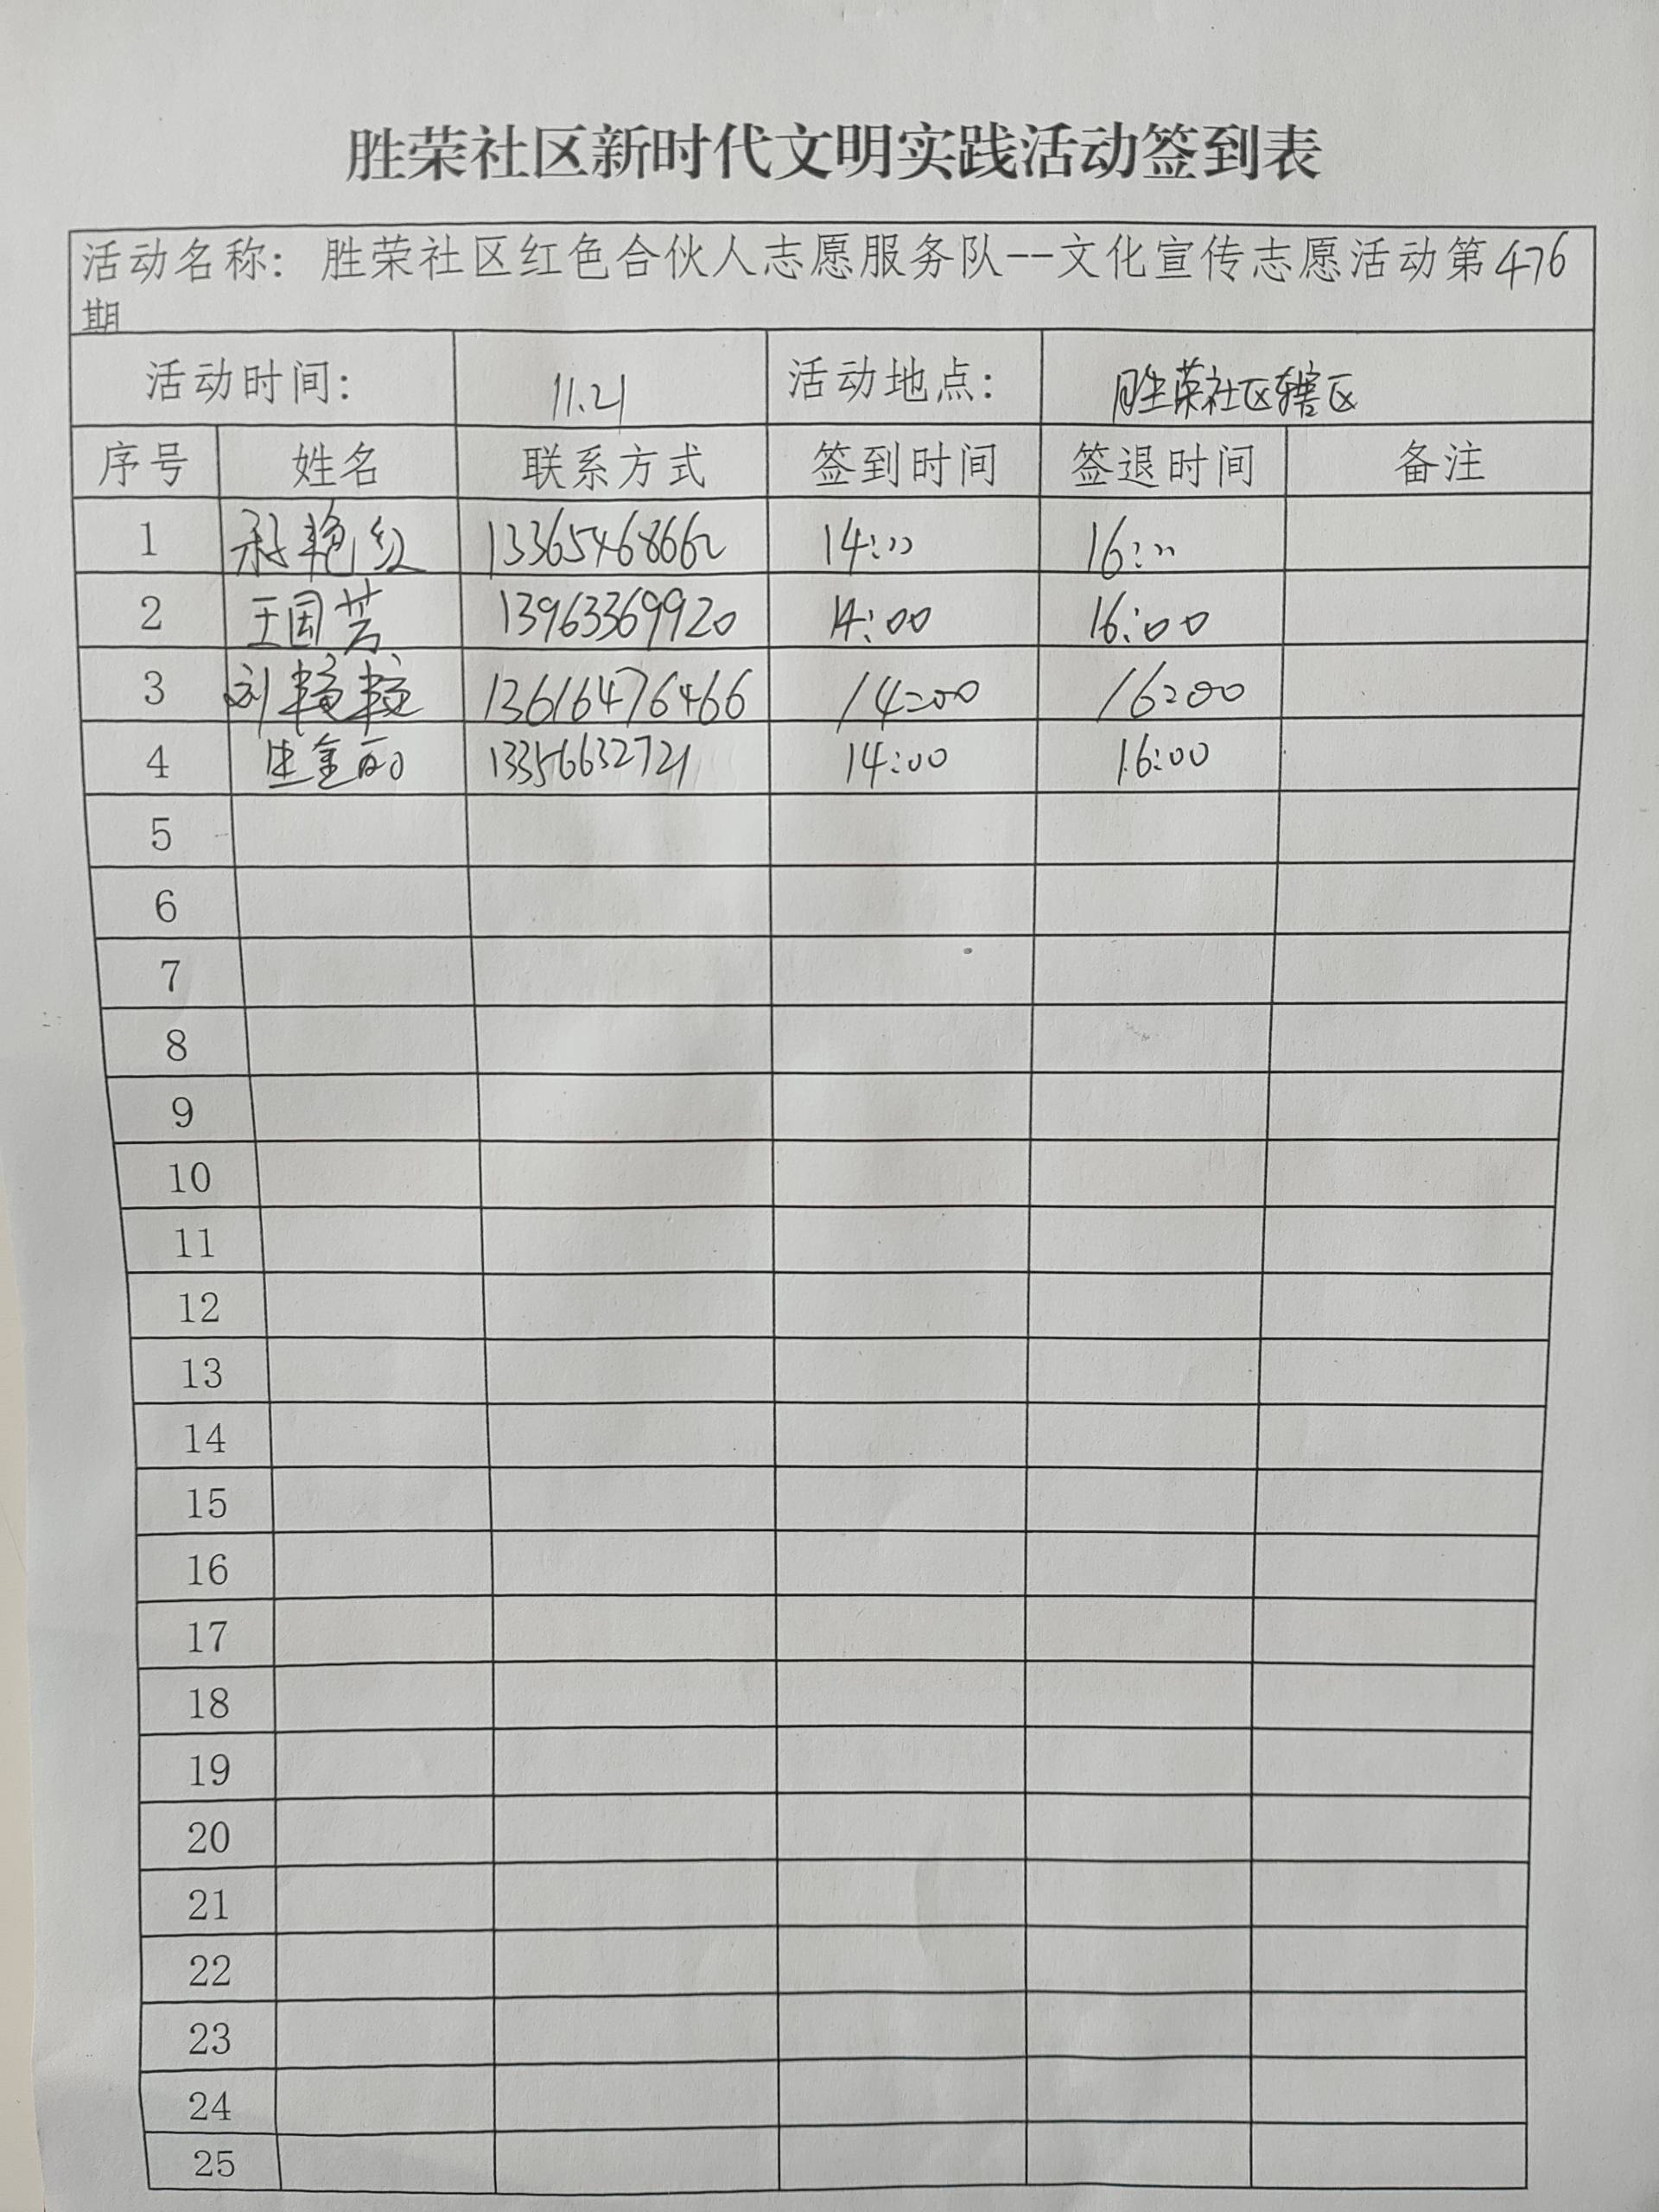 胜荣社区新时代文明实践活动签到表
活动名称：胜荣社区红色合伙人志愿服务队--文化宣传志愿活动第476
期
活动时间： 11.21 活动地点： 胜荣社区辖区
序号 姓名 联系方式 签到时间 签退时间 备注
1 艳红 13365468662 14:00 16:00
2 王国芳 13963369920 14:00 16:00
3 刘 13616476466 14:00 16:00
4 生金丽 13356632721 14:00 16:00
5
6
7
8
9
10
11
12
13
14
15
16
17
18
19
20
21
22
23
24
25